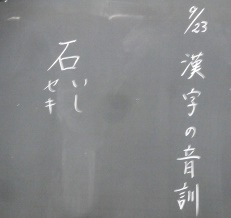 9/23
漢字の音訓
石
いし
セキ